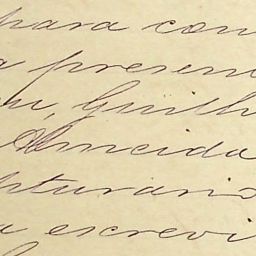 para con
a presen
Guilh
Almeida
pturario
a escrevi